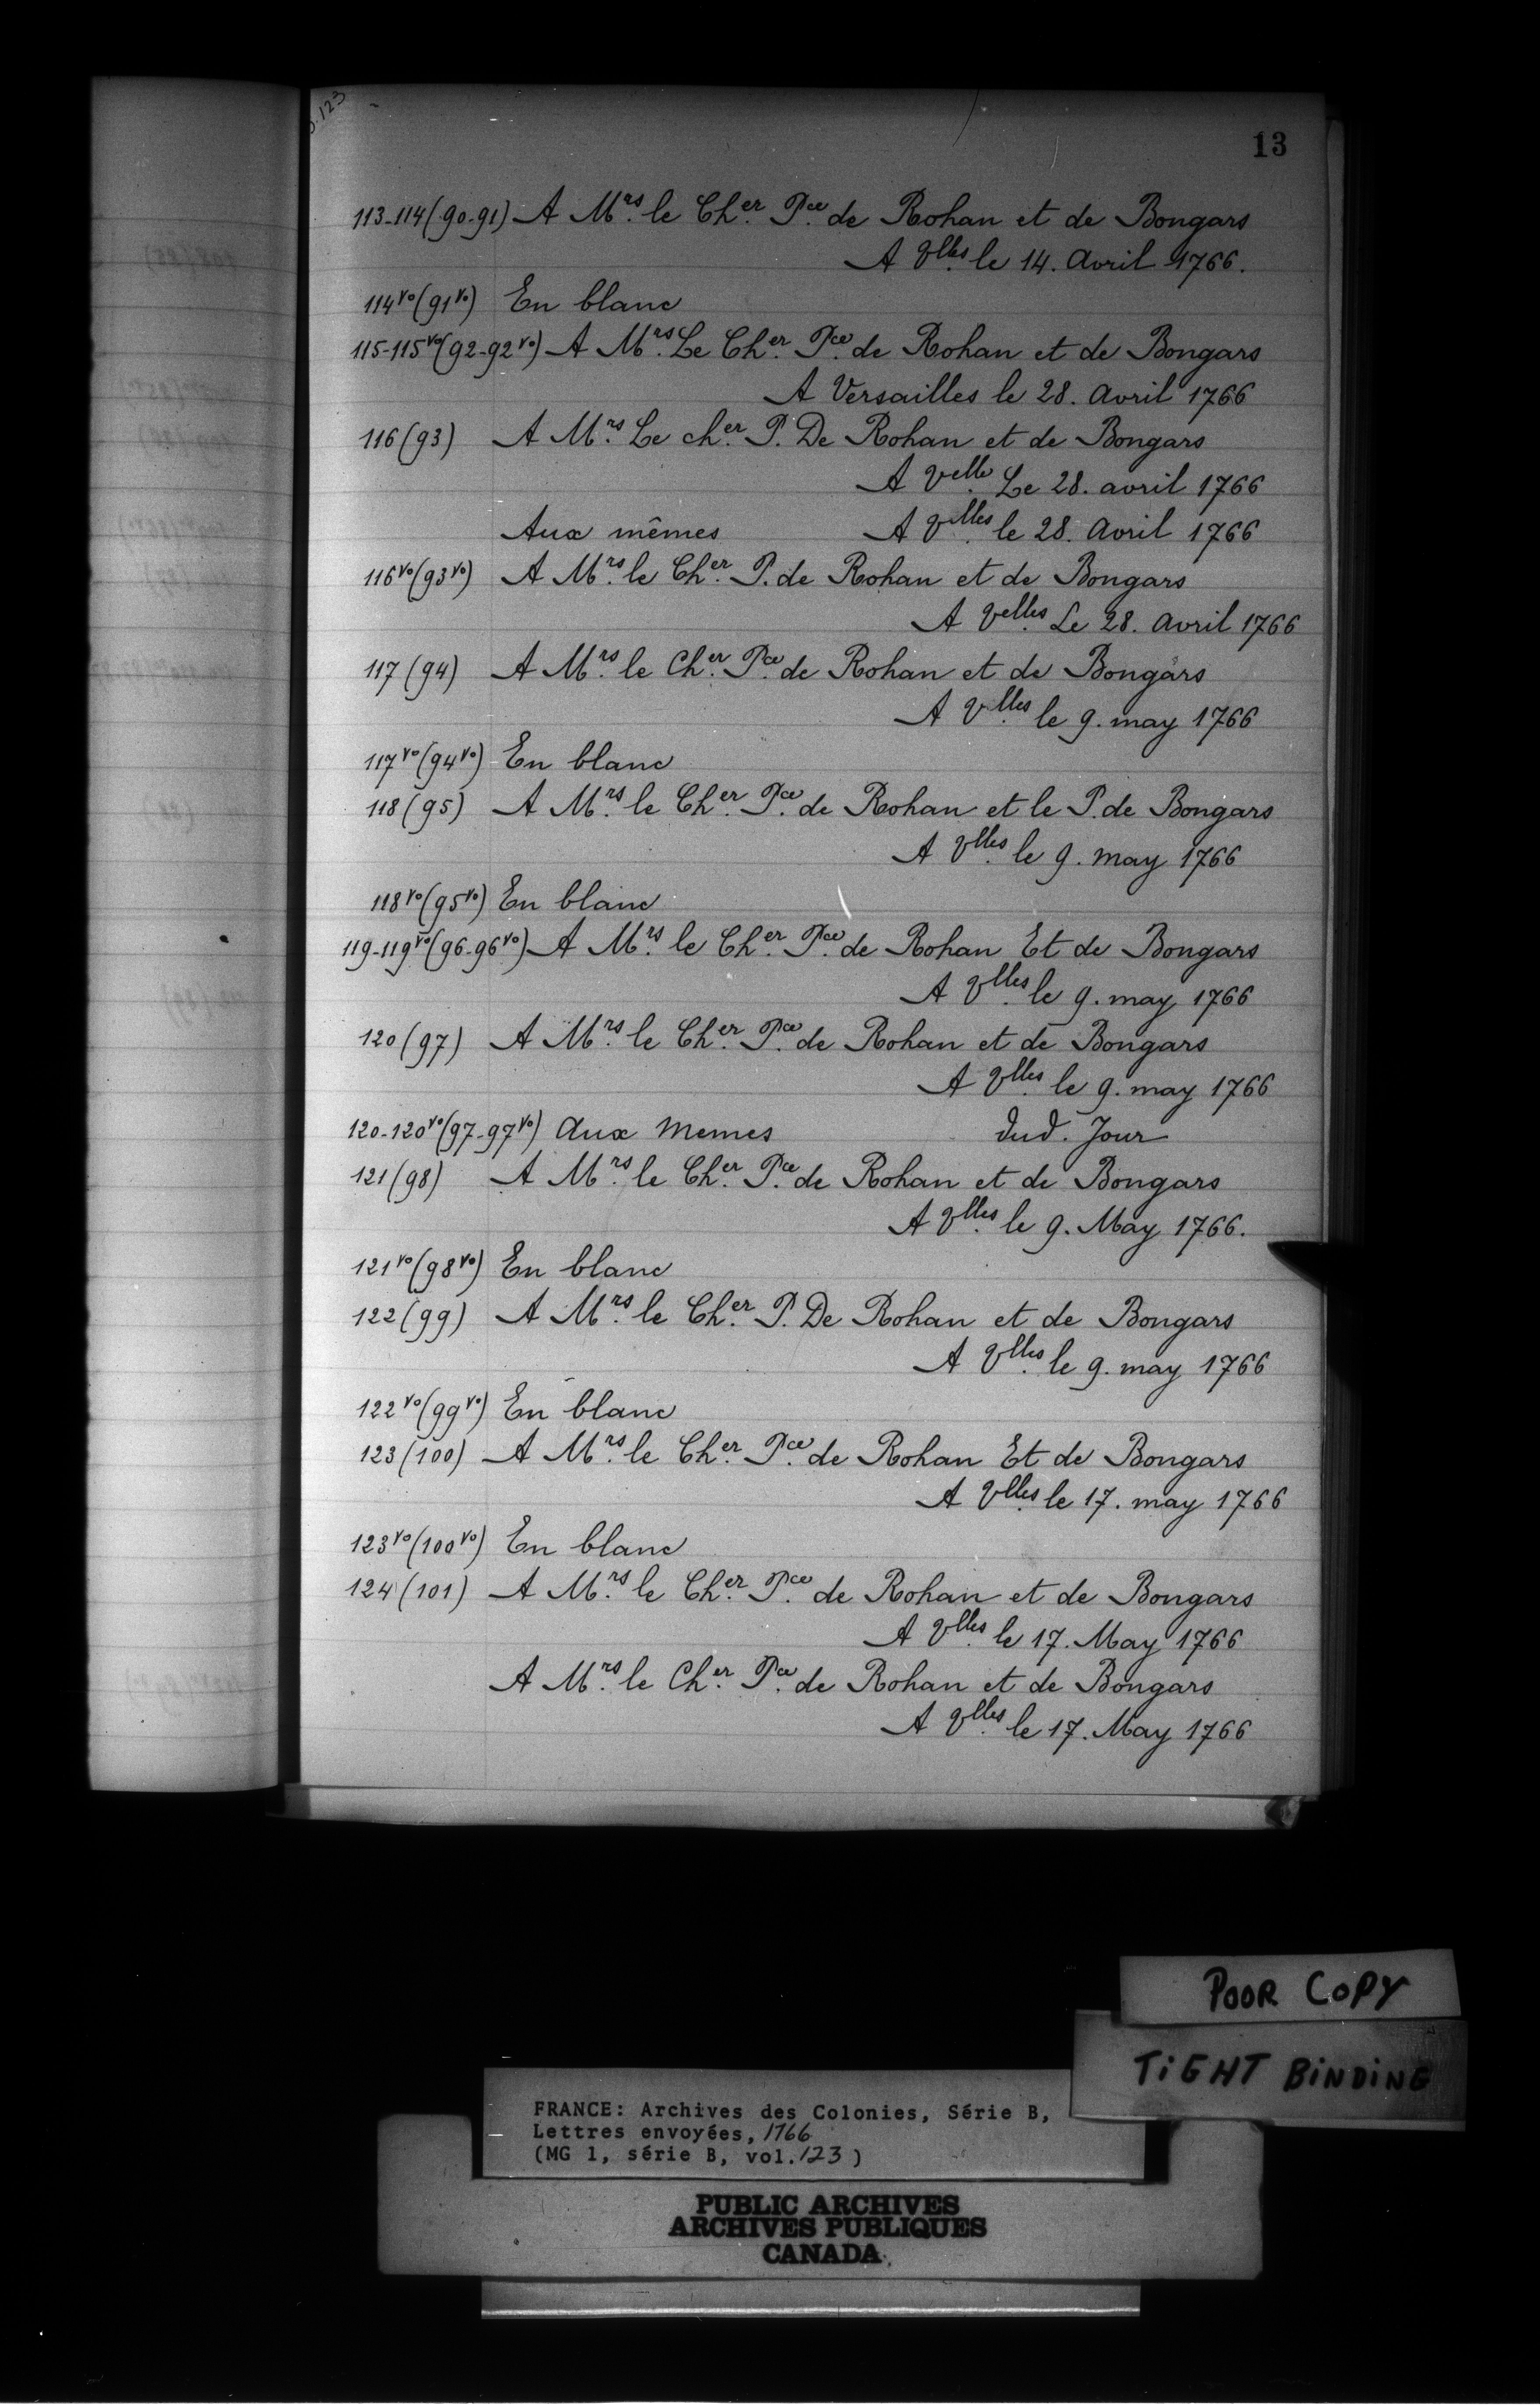 13
113-114(90-91) A Mrs. le Cher. Pce. de Rohan et de Bongars
A Vlles. le 14. Avril 1766.
114vo(91vo) En blanc
115-115vo(92-92vo) A Mrs. Le Cher. Pce. de Rohan et de Bongars
A Versailles le 28. Avril 1766
116(93) A Mrs. Le cher. P. De Rohan et de Bongars
A Velle. Le 28. avril 1766
Aux mêmes A Vlles. le 28. Avril 1766
116vo(93vo) A Mrs. le Cher. P. de Rohan et de Bongars
A Velles. Le 28. Avril 1766
117(94) A Mrs. le Cher. Pce. de Rohan et de Bongars
A Vlles. le 9. may 1766
117vo(94vo) En blanc
118(95) A Mrs. le Cher. Pce. de Rohan et le P. de Bongars
A Vlles. le 9. may 1766
118vo(95vo) En blanc
119-119vo(96-96vo) A Mrs. le Cher. Pce. de Rohan Et de Bongars
A Vlles. le 9. may 1766
120(97) A Mrs. le Cher. Pce. de Rohan et de Bongars
A Vlles. le 9. may 1766
120-120vo(97-97vo) Aux Memes dud. Jour
121(98) A Mrs. le Cher. Pce. de Rohan et de Bongars
A Vlles. le 9. May 1766.
121vo(98vo) En blanc
122(99) A Mrs. le Cher. P. De Rohan et de Bongars
A Vlles. le 9. may 1766
122vo(99vo) En blanc
123(100) A Mrs. le Cher. Pce. de Rohan Et de Bongars
A Vlles. le 17. may 1766
123vo(100vo) En blanc
124(101) A Mrs. le Cher. Pce. de Rohan et de Bongars
A Vlles. le 17. May 1766
A Mrs. le Cher. Pce. de Rohan et de Bongars
A Vlles. le 17. May 1766
POOR COPY
TIGHT BINDING
FRANCE: Archives des Colonies, Série B,
Lettres envoyées, 1766
(MG 1, série B, vol. 123)
PUBLIC ARCHIVES
ARCHIVES PUBLIQUES
CANADA